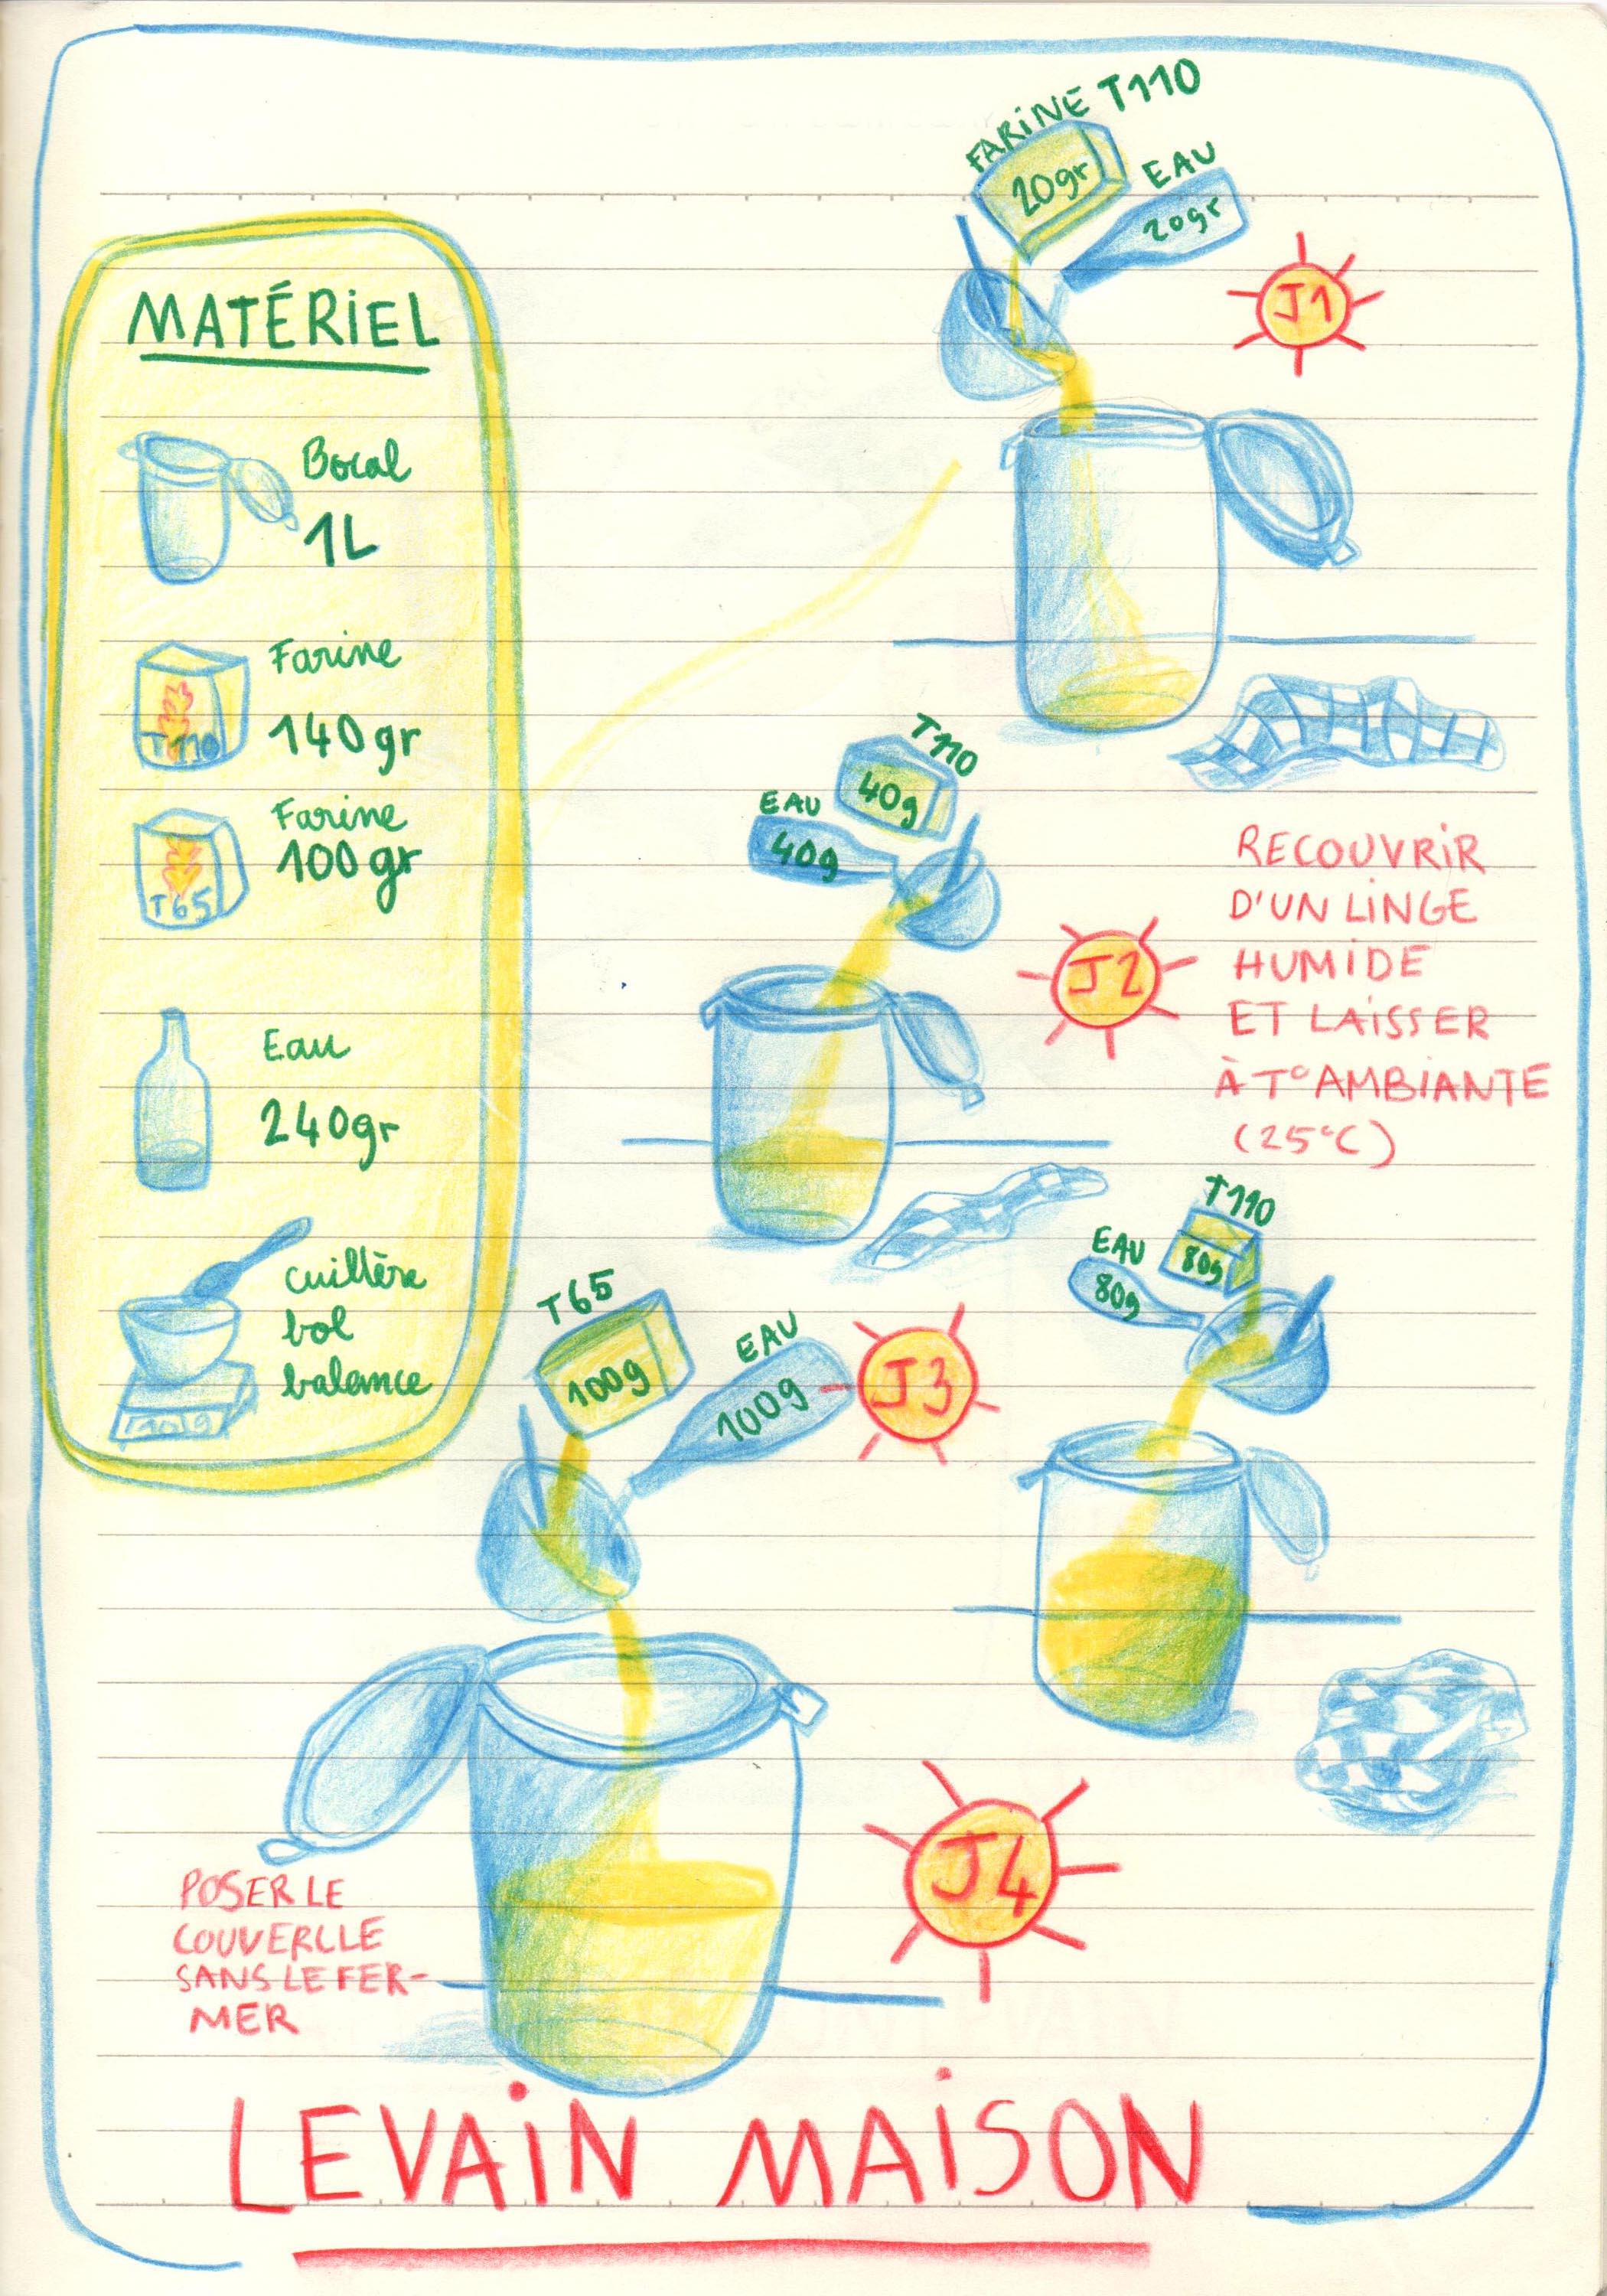 MATÉRIEL
Bocal
1L
Farine
T110
140gr
Farine
100gr
T65
Eau
240gr
cuillère
bol
balance
FARINE T110
20gr
EAU
20gr
J1
T110
40g
EAU
40g
J2
RECOUVRIR
D'UN LINGE
HUMIDE
ET LAISSER
À T° AMBIANTE
(25°C)
T110
80g
EAU
80g
J3
T65
100g
EAU
100g
J4
POSER LE
COUVERCLE
SANS LE FER-
MER
LEVAIN MAISON